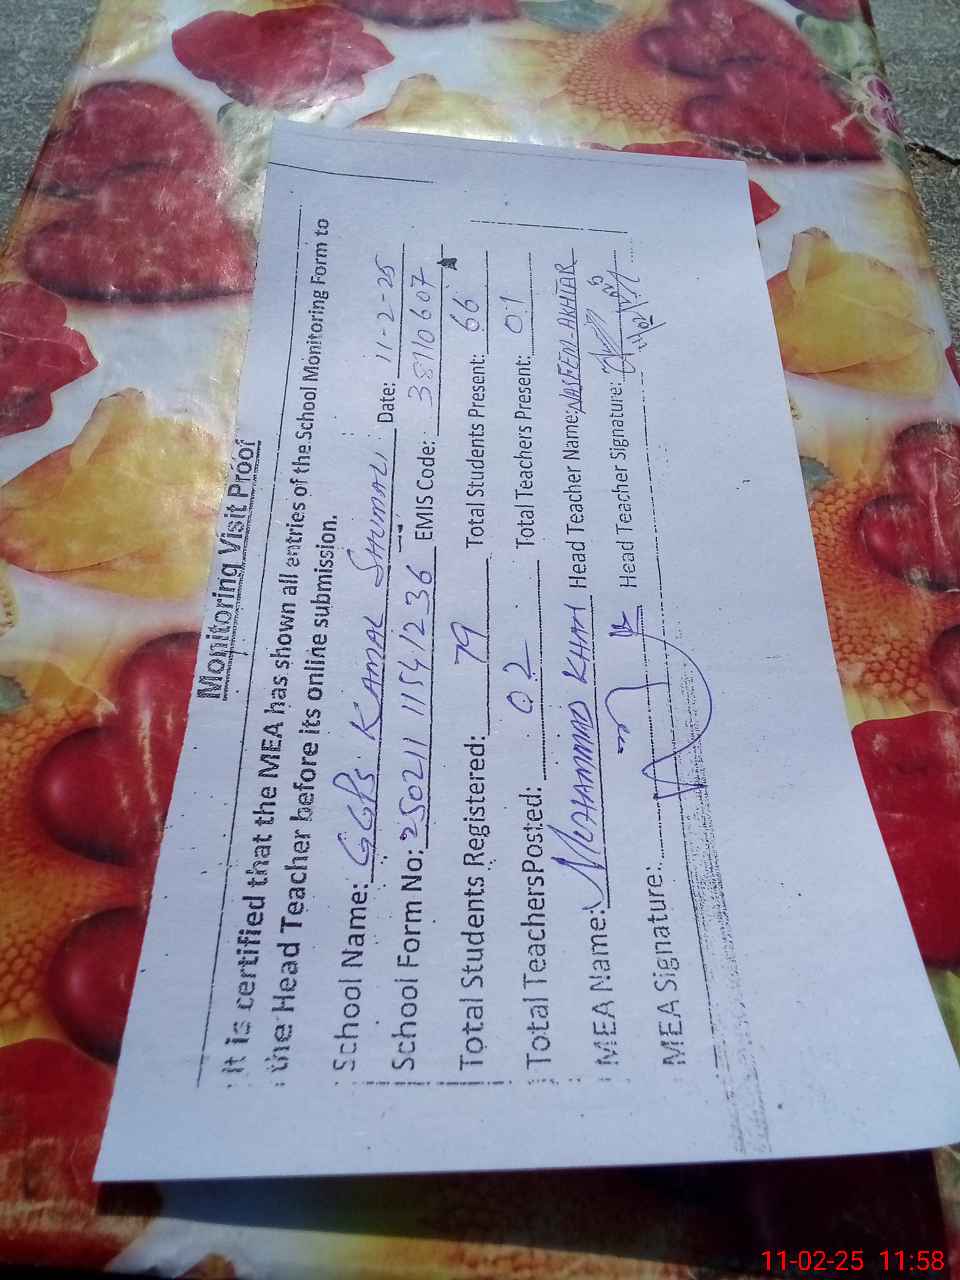 Monitoring Visit Proof
It is certified that the MEA has shown all entries of the School Monitoring Form to
the Head Teacher before its online submission.
School Name: GGPS KAMAL SHUMALI Date: 11-2-25
School Form No: 250211 1154 1236 EMIS Code: 38110607
Total Students Registered: 79 Total Students Present: 66
Total TeachersPosted: 02 Total Teachers Present: 01
MEA Name: MUHAMMAD KHAN Head Teacher Name: NASEEM-AKHTAR
MEA Signature: Head Teacher Signature:
11-02-25 11:58